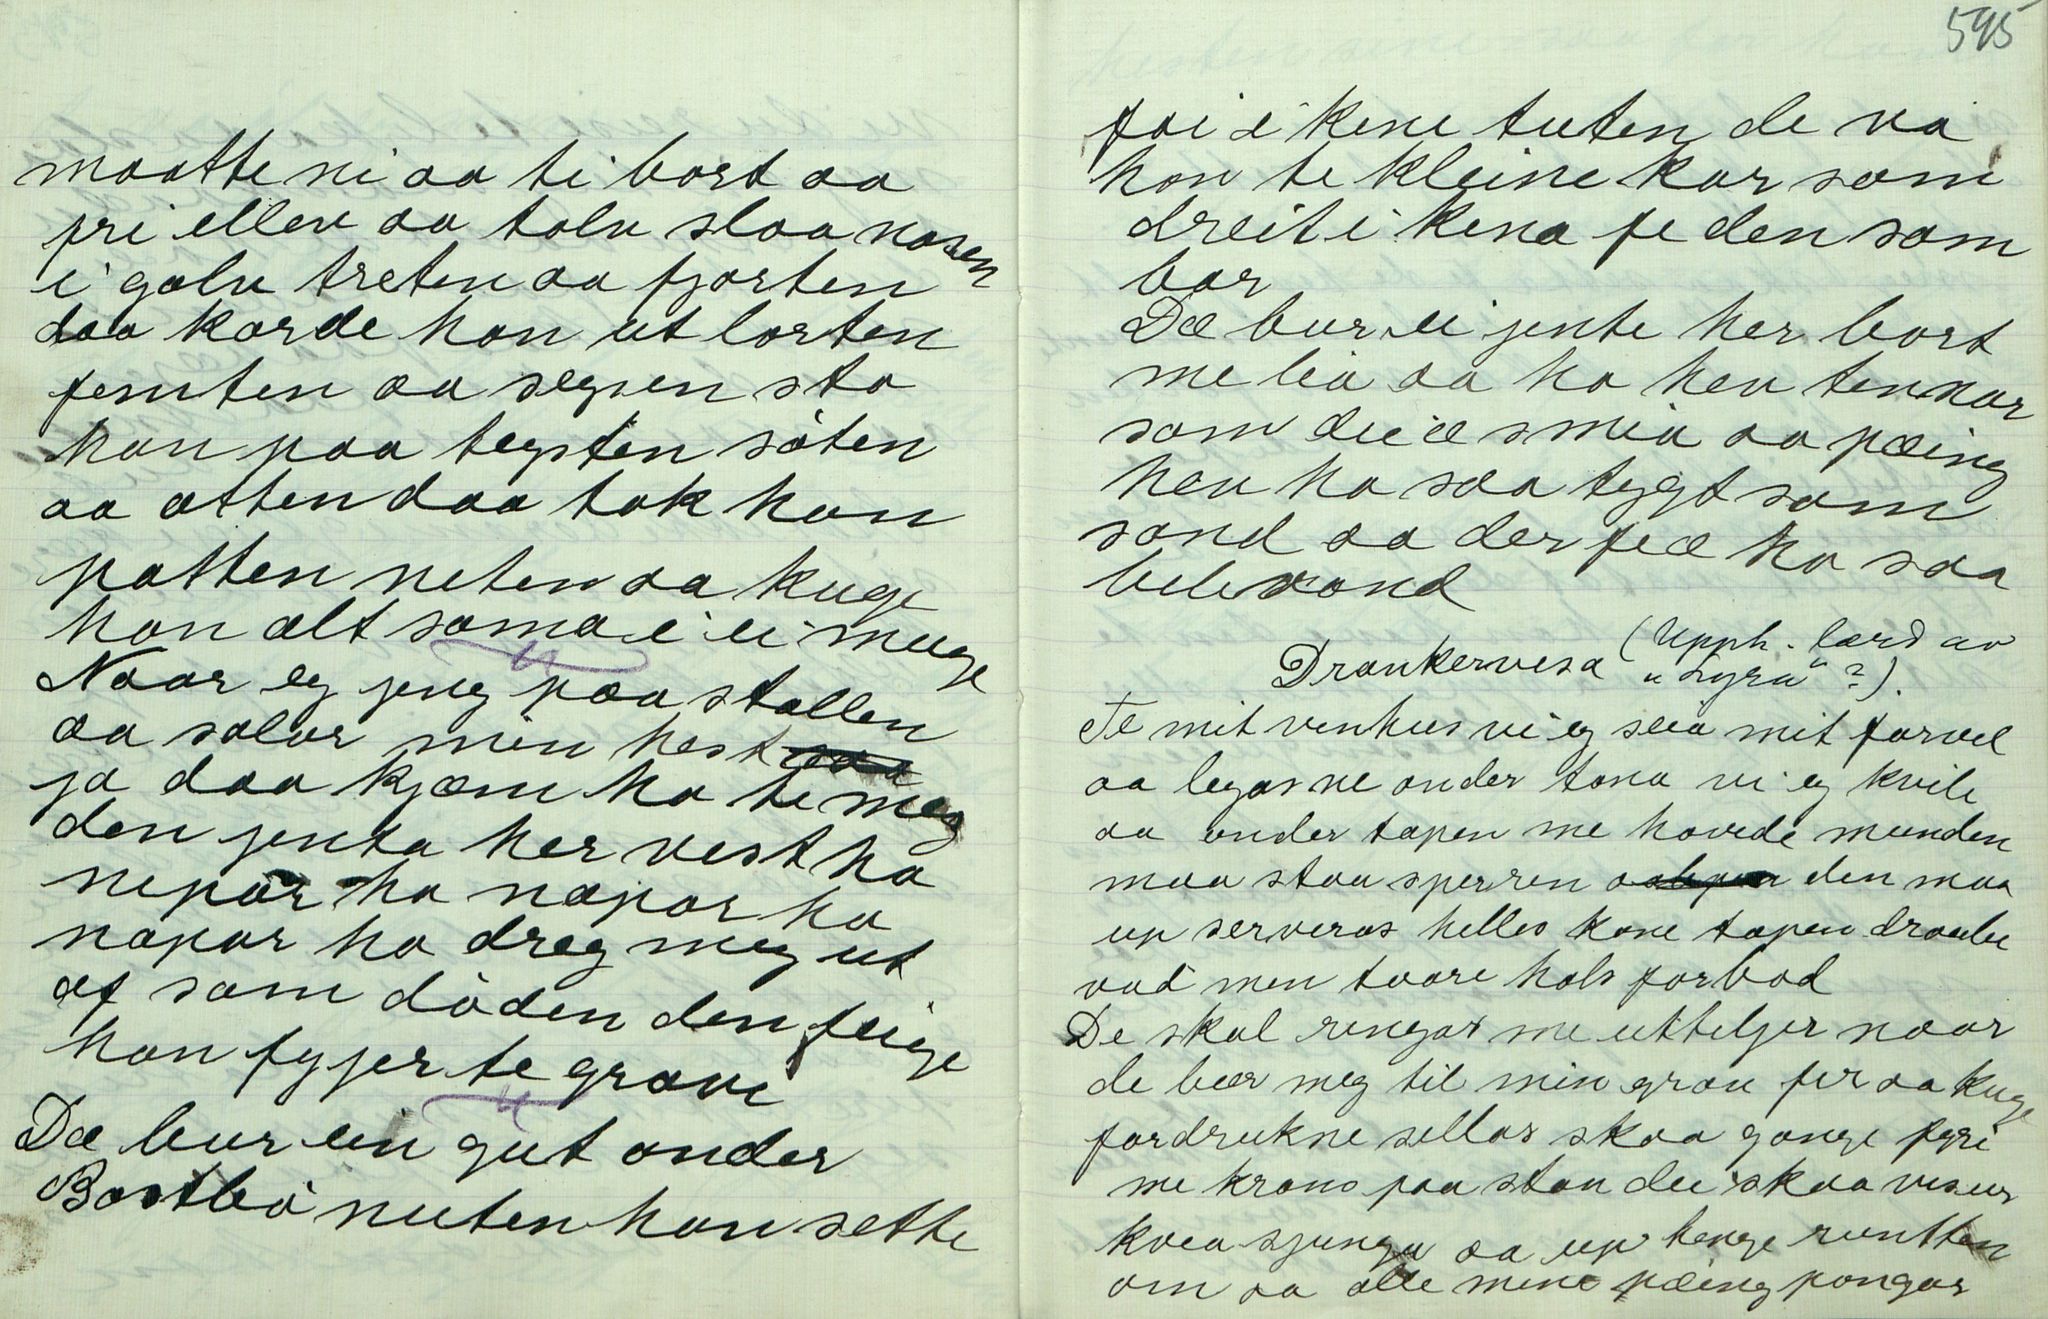 maatte ni aa ti bort aa
fri ellev aa tolv slaa nasen
i golv treten aa fjorten
daa karde han ut lorten
femten aa segsen sto
han paa tegsten söten
aa atten daa tok han
potten neten aa kuge
han alt sama i ei muge
Naar eg jeng paa stallen
aa salar min hest
ja daa kjæm ho te meg
den jenta her vest ho
nepar ho næpar ho
næpar ho dreg meg ut
af som döden den feige
han fyljer te grave
Dæ bur ein gut onder
Bostbö nuten han sette
595
foi i kene tuten de va
han te kleine kar som
dreit i kena fe den som
bar
Dæ bur ei jente her bort
me lia aa ho hev tennar
som dei æ smia aa pæing
hev ho saa tygt som
sand aa der fe æ ho saa
bele vand
Drankervisa (Upph. lærd av
"Lyra"?).
Te mit venhus vi eg seia mit farvel
aa legas ne onder tona vi eg kvile
aa onder tapen me hovede munden
maa staa sperren den maa
up serveras helles kane tapen draabe
vad men taare hals forbad
De skal ringas me utteljer naar
de bær meg til min grav fir aa kuge
fordrukne sellar skaa gange fyri
me krans paa stav dei skaa visur
kvea sjunga aa up henge runtten
om aa alle mine pæing pongar